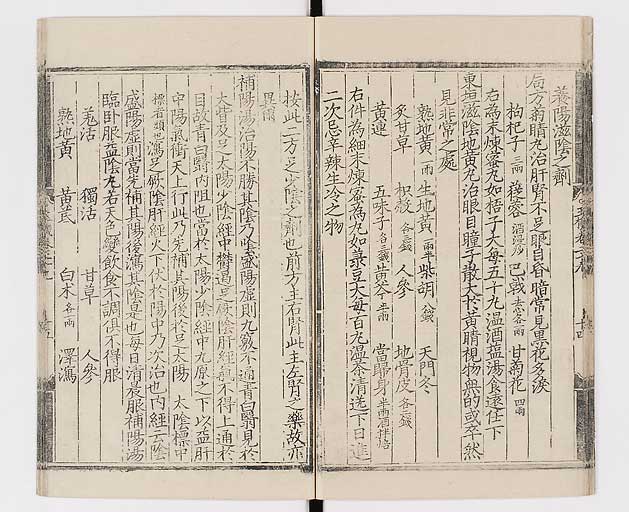 養陽滋陰之劑
后方菊睛丸治肝腎不足眼目昏暗常見黑花多淚
枸杞子 三兩 蓉 酒浸 巴戟 去心 一兩 甘菊花 四兩
右為末煉蜜丸如梧子大每五十丸溫酒鹽湯食遠任下
東垣滋陰地黃丸治眼目瞳子散大於黃睛視物無的或卒然
見非常之處
熟地黃 一兩 生地黃 一兩半 柴胡 八錢 天門冬
炙甘草 枳殼 各三錢 人參 地骨皮 各二錢
黃連 五味子 各三錢 黃芩 半兩 當歸身 半兩酒拌
右件為細末煉蜜為丸如菉豆大每百丸溫茶清送下日進
二次忌辛辣生冷之物
按此二方足少陰之劑也前方主右腎此主左腎之藥故亦
異爾
補陽湯治陽不勝其陰乃陰盛陽虛則九竅不通青白翳見於
大眥及足太陽少陰經中鬱遏足厥陰肝經氣不得上通於
目故青白翳內阻也當於太陽少陰經中九原之下以益肝
中陽氣衝天上行此乃先補其陽後於足太陽 太陰標中
標者頭也 瀉足厥陰肝經火下伏於陽中乃次治也內經云陰
盛陽虛則當先補其陽後瀉其陰是也每日清晨服補陽湯
臨臥服益陰丸若天色變飲食不調俱不得服
羌活 獨活 甘草 人參
熟地黃 黃芪 白朮 各一兩 澤瀉